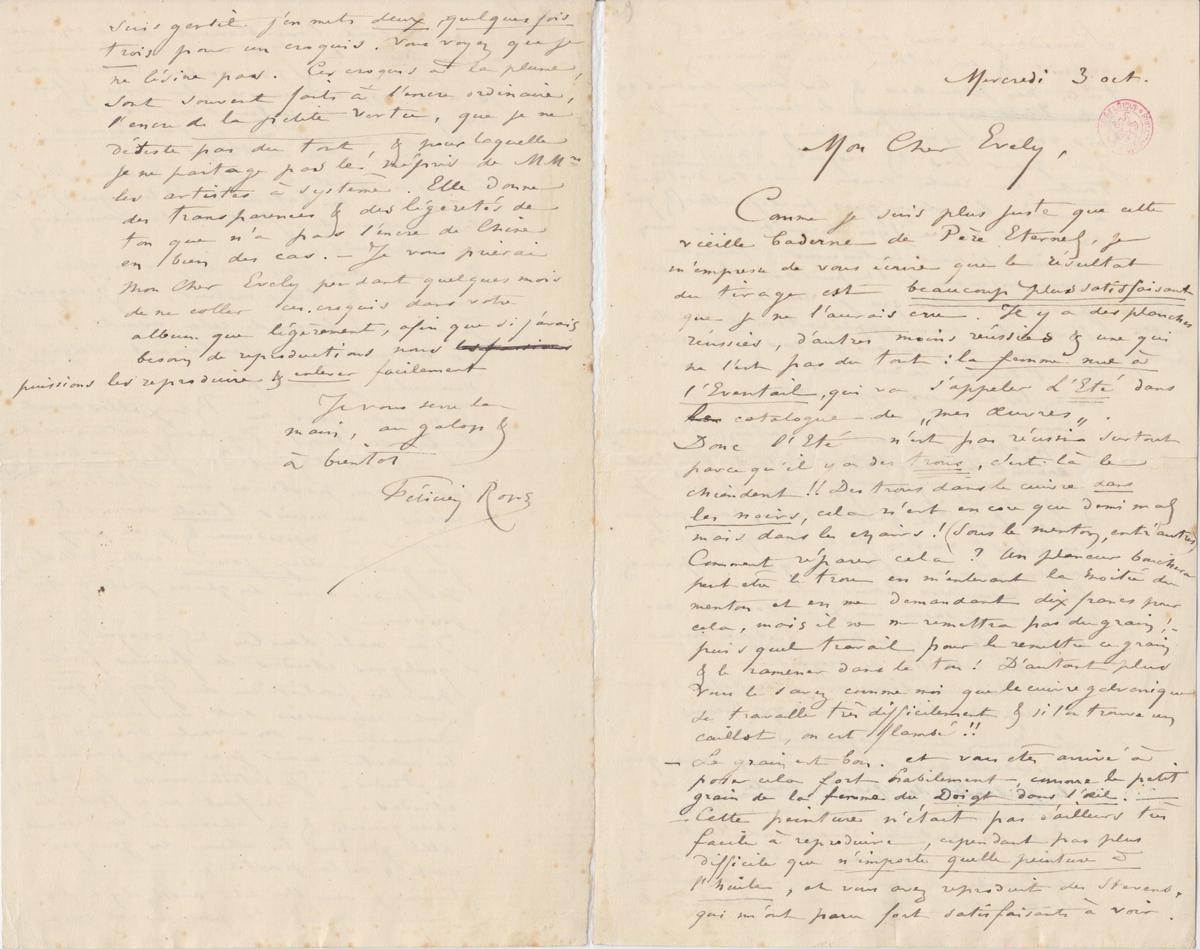 Mercredi 3 oct.
Mon Cher Evely,
Comme je suis plus juste que cette
vieille baderne de Père Eternel, je
m'empresse de vous écrire que le résultat
du tirage est beaucoup plus satisfaisant
que je ne l'aurais cru. Il y a des planches
réussies, d'autres moins réussies & une qui
ne l'est pas du tout : la femme nue à
l'Eventail, qui va s'appeler L'Eté dans
catalogue de „mes Œuvres„.
Donc l'Eté n'est pas réussie surtout
parce qu'il y a des trous, c'est là le
chiendent !! Des trous dans le cuivre dans
les noirs, cela n'est encore que demi mal
mais dans les chairs ! (Sous le menton, entr'autres)
Comment réparer cela ? Un planeur bouchera
peut etre le trou en m'enlevant la moitié du
menton et en me demandant dix francs pour
cela, mais il ne me remettra pas du grain ! –
puis quel travail pour le remettre ce grain
& le ramener dans le ton ! D'autant plus
vous le savez comme moi que le cuivre galvanique
se travaille très difficilement & si l'on trouve un
caillot, on est flambé !!
– Le grain est bon. et vous etes arrivé à
poser cela fort habilement, comme le petit
grain de la femme du Doigt dans l'œil.
– Cette peinture n'était pas d'ailleurs très
facile à reproduire, cependant pas plus
difficile que n'importe quelle peinture à
l'huile, et vous avez reproduit des Stevens,
qui m'ont paru fort satisfaisants à voir.
suis gentil j'en mets deux, quelques fois
trois pour un croquis. Vous voyez que je
ne lésine pas. Ces croquis à la plume,
sont souvent faits à l'encre ordinaire,
l'encre de la petite vertu, que je ne
déteste pas du tout, & pour laquelle
je ne partage pas le mépris de MM rs
les artistes à système. Elle donne
des transparences & des légèretés de
ton que n'a pas l'encre de Chine
en bien des cas. – Je vous prierai
Mon Cher Evely pendant quelques mois
de ne coller ces croquis dans votre
album que légèrement, afin que si j'avais
besoin de reproductions nous
puissions les reproduire & enlever facilement
Je vous serre la
main, au galop &
à bientot
Félicien Rops